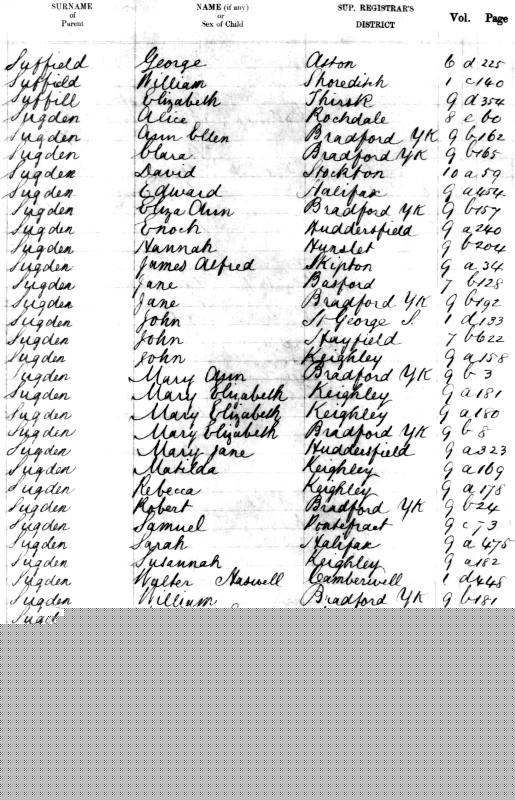 SURNAME of Parent NAME (if any) or Sex of Child SUP. REGISTRAR'S DISTRICT Vol. Page
Suffield George Aston 6 d 225
Suffield William Shoreditch 1 c 140
Suffill Elizabeth Thirsk 9 d 354
Sugden Alice Rochdale 8 e 60
Sugden Ann Ellen Bradford YK 9 b 162
Sugden Clara Bradford YK 9 b 165
Sugden David Stockton 10 a 59
Sugden Edward Halifax 9 a 454
Sugden Eliza Ann Bradford YK 9 b 157
Sugden Enoch Huddersfield 9 a 240
Sugden Hannah Hunslet 9 b 204
Sugden James Alfred Skipton 9 a 34
Sugden Jane Basford 7 b 128
Sugden Jane Bradford YK 9 b 192
Sugden John St George S. 1 d 133
Sugden John Hayfield 7 b 622
Sugden John Keighley 9 a 158
Sugden Mary Ann Bradford YK 9 b 3
Sugden Mary Elizabeth Keighley 9 a 181
Sugden Mary Elizabeth Keighley 9 a 180
Sugden Mary Elizabeth Bradford YK 9 b 8
Sugden Mary Jane Huddersfield 9 a 323
Sugden Matilda Keighley 9 a 169
Sugden Rebecca Keighley 9 a 178
Sugden Robert Bradford YK 9 b 24
Sugden Samuel Pontefract 9 c 73
Sugden Sarah Halifax 9 a 475
Sugden Susannah Keighley 9 a 182
Sugden Walter Haswell Camberwell 1 d 448
Sugden William Bradford YK 9 b 181